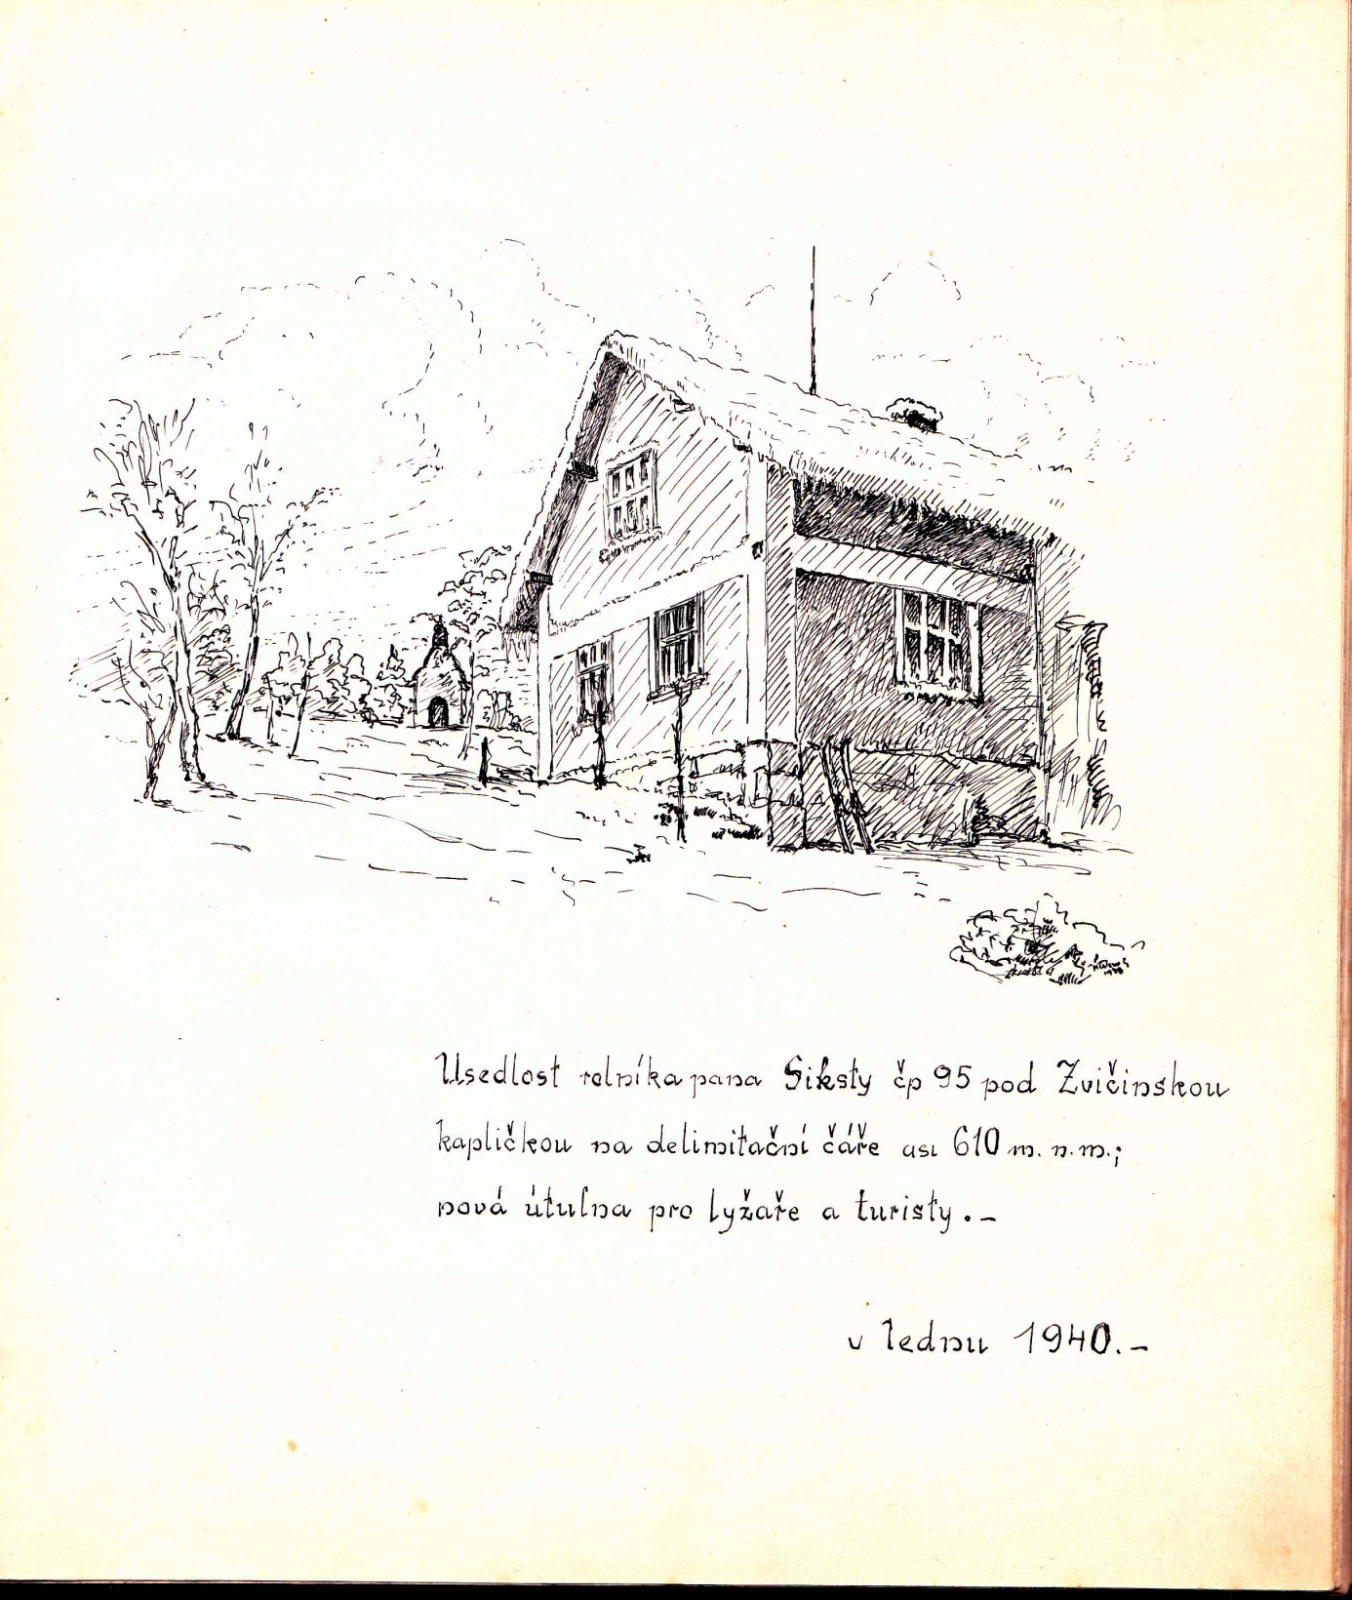 Usedlost rolníka pana Siksty čp 95 pod Zvičinskou
kapličkou na delimitační čáře asi 610 m. n. m.;
nová útulna pro lyžaře a turisty. –
v lednu 1940. –